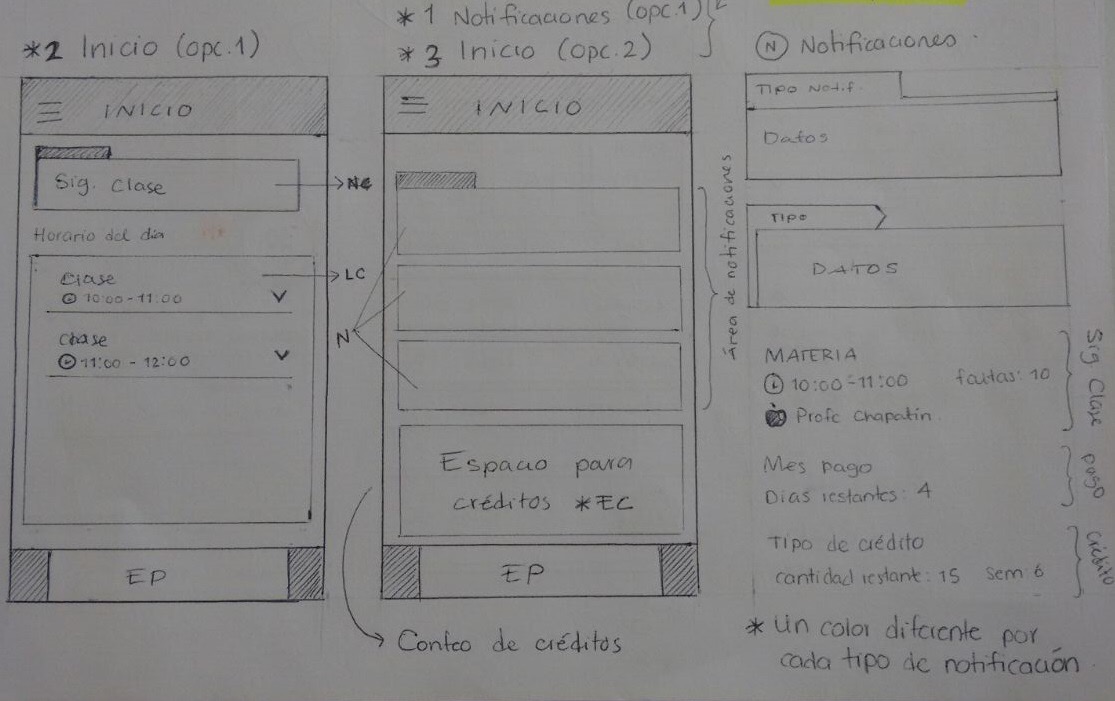 *2 Inicio (opc.1)
INICIO
Sig. Clase
NC
Horario del día
Clase
10:00-11:00
LC
Clase
11:00 - 12:00
EP
*1 Notificaciones (opc.1)
*3 Inicio (opc.2)
INICIO
N
Área de notificaciones
Espacio para
créditos *EC
EP
Conteo de créditos
N Notificaciones
TIPO Notif.
Datos
TIPO
DATOS
MATERIA
10:00-11:00 faltas: 10
Profe Chapatin
Sig Clase
Mes pago
Dias restantes: 4
pago
Tipo de crédito
cantidad restant: 15 sem: 6
crédito
* Un color diferente por
cada tipo de notificación